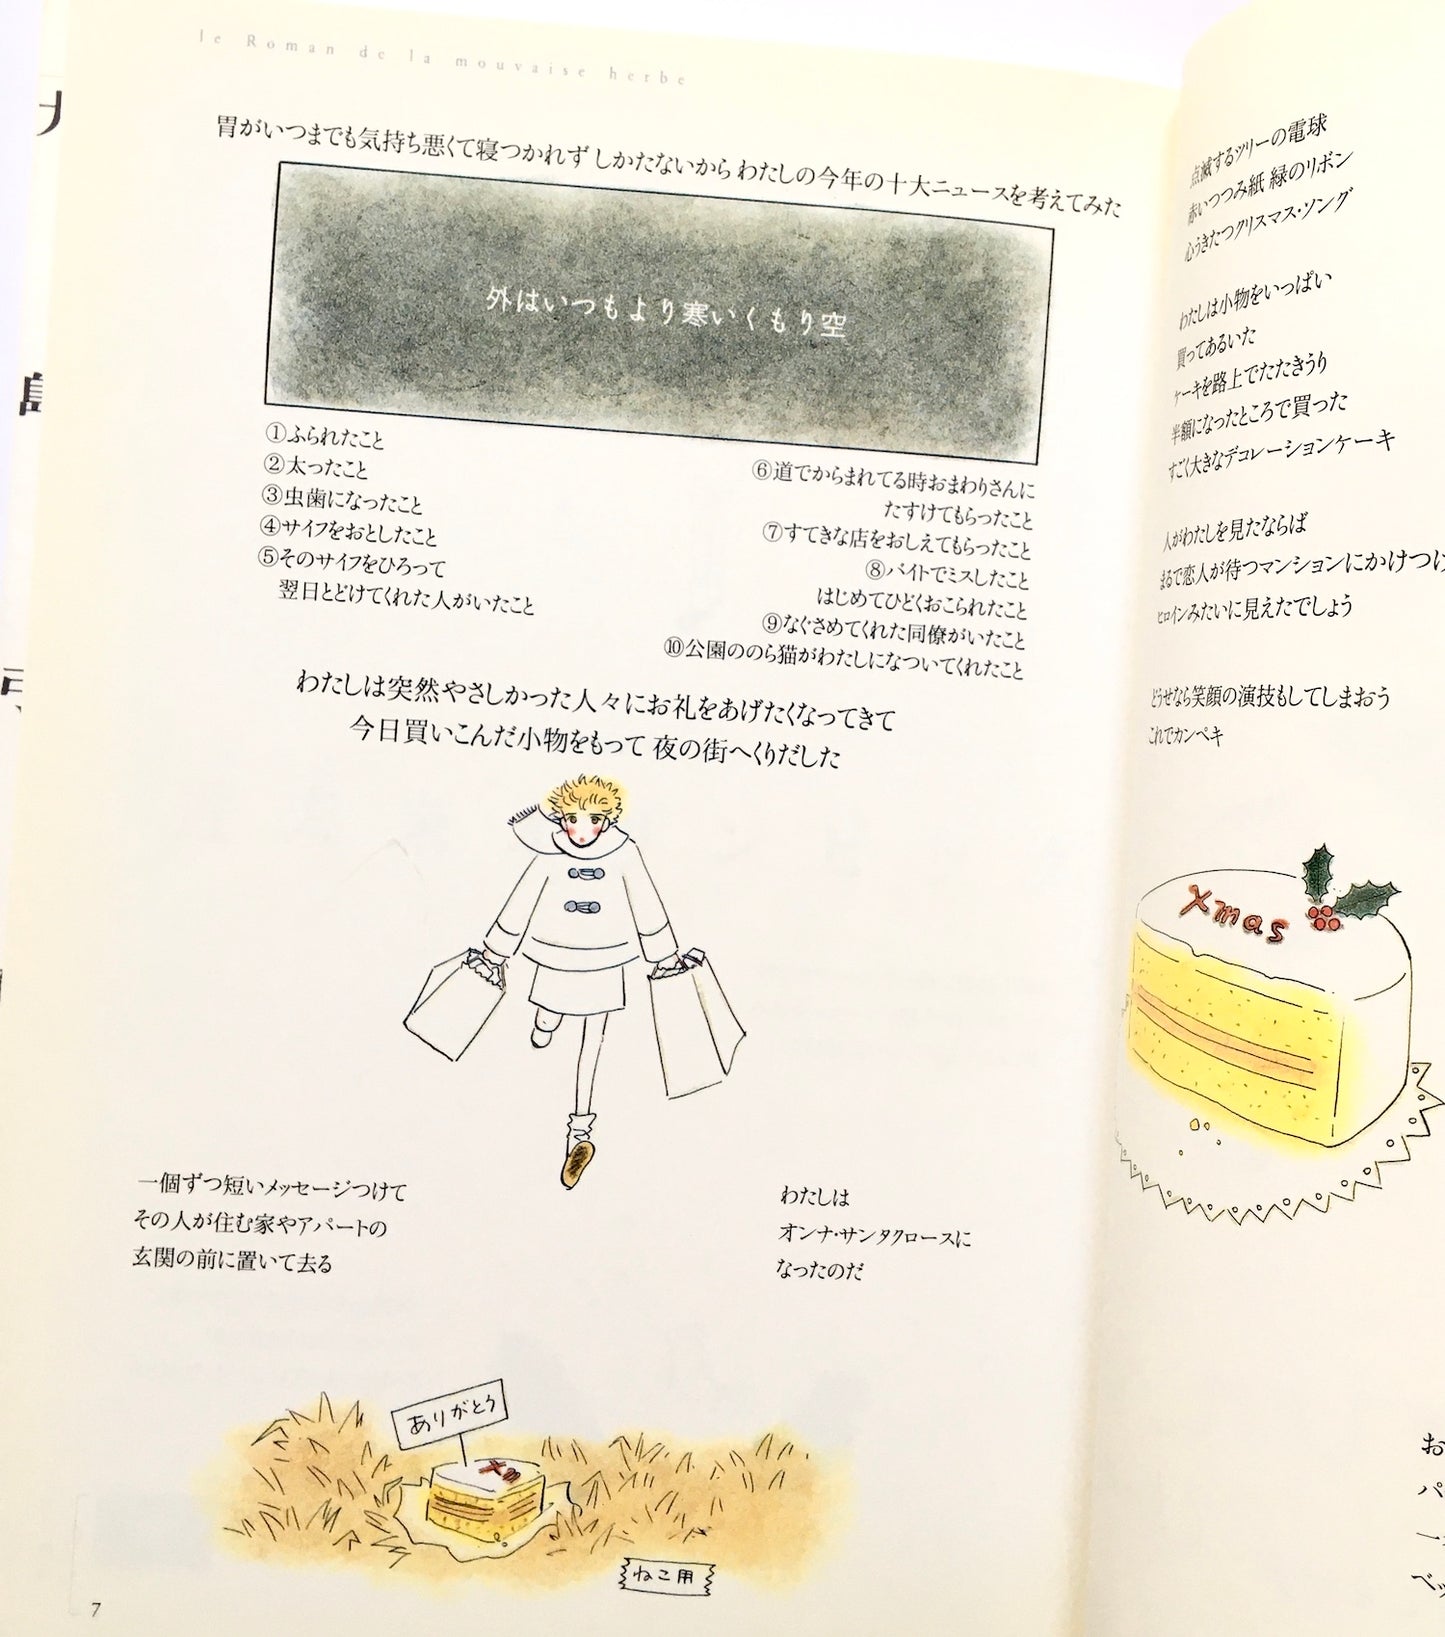 le Roman de la mouvaise herbe
胃がいつまでも気持ち悪くて寝つかれず しかたないから わたしの今年の十大ニュースを考えてみた
外はいつもより寒いくもり空
①ふられたこと
②太ったこと
③虫歯になったこと
④サイフをおとしたこと
⑤そのサイフをひろって
翌日とどけてくれた人がいたこと
⑥道でからまれてる時おまわりさんに
たすけてもらったこと
⑦すてきな店をおしえてもらったこと
⑧バイトでミスしたこと
はじめてひどくおこられたこと
⑨なぐさめてくれた同僚がいたこと
⑩公園ののら猫がわたしになついてくれたこと
わたしは突然やさしかった人々にお礼をあげたくなってきて
今日買いこんだ小物をもって 夜の街へくりだした
一個ずつ短いメッセージつけて
その人が住む家やアパートの
玄関の前に置いて去る
わたしは
オンナ・サンタクロースに
なったのだ
ありがとう
Xm
ねこ用
7
点滅するツリーの電球
赤いつつみ紙 緑のリボン
心うきたつクリスマス・ソング
わたしは小物をいっぱい
買ってあるいた
ケーキを路上でたたきうり
半額になったところで買った
すごく大きなデコレーションケーキ
人がわたしを見たならば
まるで恋人が待つマンションにかけつけ
ヒロインみたいに見えたでしょう
どうせなら笑顔の演技もしてしまおう
これでカンペキ
Xmas
お
パ
ベッ